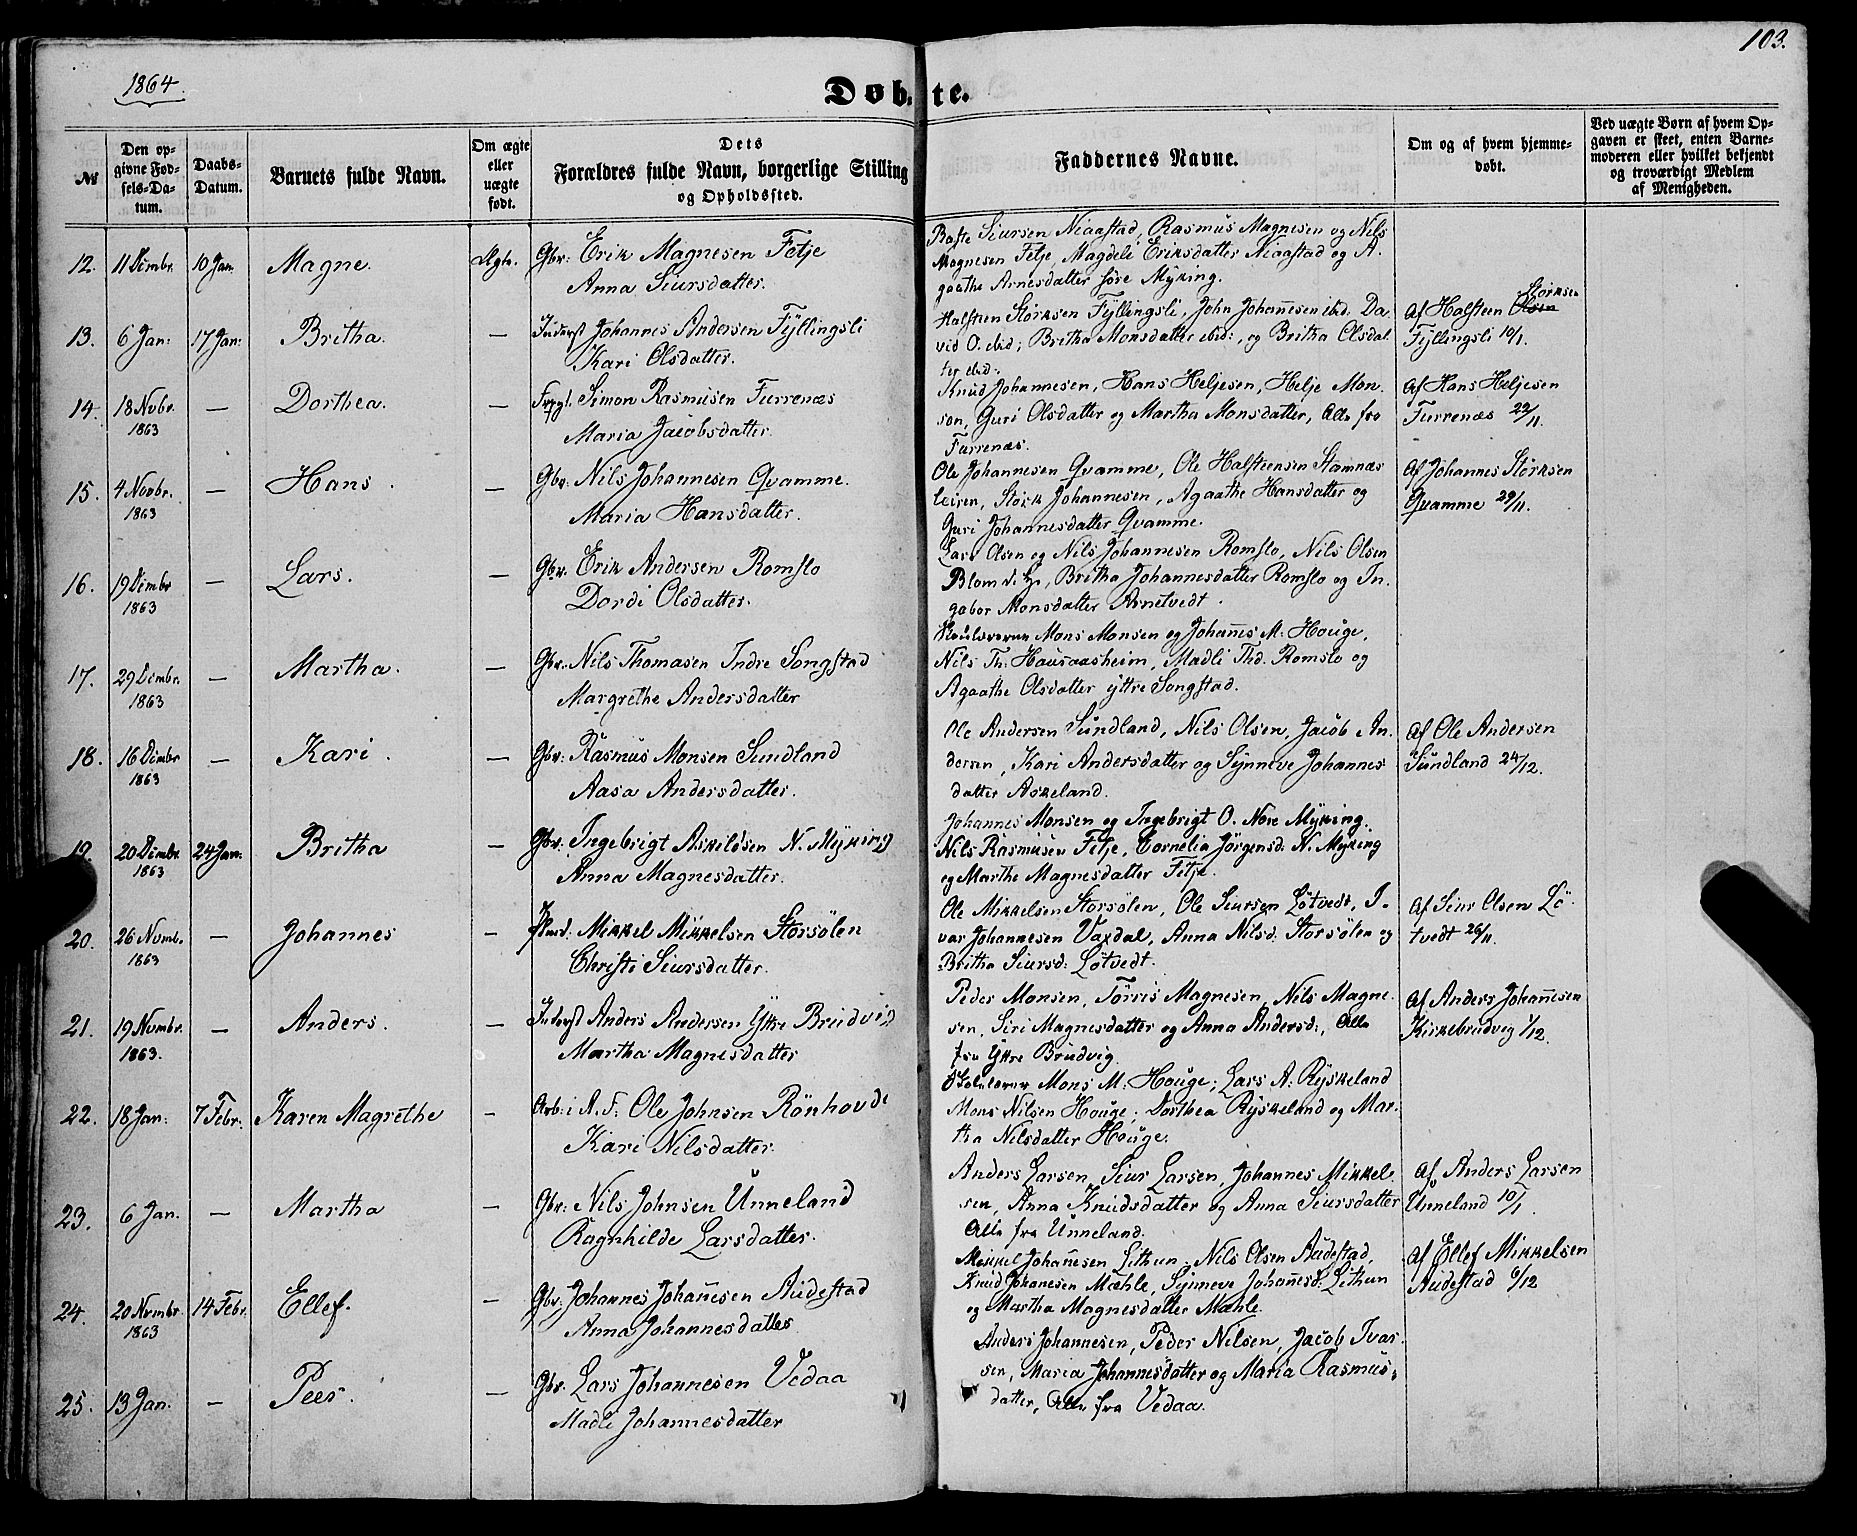 103.
1864.
Døbte.
№
Den opgivne Fødsels-Datum.
Daabs-Datum.
Barnets fulde Navn.
Om ægte eller uægte født.
Dets Forældres fulde Navn, borgerlige Stilling og Opholdssted.
Faddernes Navne.
Om og af hvem hjemmedøbt.
Ved uægte Børn af hvem Opgaven er skeet, enten Barnemoderen eller hvilket bekjendt og troværdigt Medlem af Menigheden.
12. 11 Dcmbr. 10 Jan. Magne. Ægte. Gbr: Erik Magnesen Fetje
Anna Siursdatter.
Baste Siursen Niaastad, Rasmus Magnesen og Nils
Magnesen Fetje, Magdeli Eriksdatter Niaastad og A.
gathe Arnesdatter søre Myking.
13. 6 Jan: 17 Jan: Britha. — Inderst Johannes Andersen Fyllingsli
Kari Olsdatter.
Halsteen Størksen Fyllingsli, John Johannesen ibd. Da
vid O. ibid; Britha Monsdatter ibid:, og Britha Olsdat
ter ibd.
Af Halsteen Olsen Størksen
Fyllingsli 10/1.
14. 18 Novbr. 1863 — Dorthea. — Simon Rasmusen Furrenæs
Maria Jacobsdatter.
Knud Johannesen, Hans Heljesen, Helje Mon.
son, Guri Olsdatter og Martha Monsdatter, Alle fra
Furrenæs.
Af Hans Heljesen
Furrenæs 22/11.
15. 4 Novbr. 1863 — Hans. — Gbr. Nils Johannesen Qvamme.
Maria Hansdatter.
Ole Johannesen Qvamme, Ole Halsteensen Stamnæs
leiren, Størk Johannesen, Agaathe Hansdatter og
Guri Johannesdatter Qvamme.
Af Johannes Størksen
Qvamme 29/11.
16. 19 Dcmbr 1863 — Lars. — Gbr. Erik Andersen Romslo
Dordi Olsdatter.
Lars Olsen og Nils Johannesen Romslo, Nils Olsen
Blomd. Britha Johannesdatter Romslo og In.
gebor Monsdatter Arnetvedt.
17. 29 Dcmbr. 1863 — Martha. — Gbr: Nils Thomasen Indre Songstad
Margrethe Andersdatter
Skolelærerne Mons Monsen og Johanes M. Houge,
Nils Th: Hausaasheim, Madli Thd. Romslo og
Agaathe Olsdatter ytre Songstad.
18. 16 Dcmbr 1863 — Kari. — Gbr: Rasmus Monsen Sundland
Aasa Andersdatter.
Ole Andersen Sundland, Nils Olsen, Jacob An.
dersen, Kari Andersdatter og Synneve Johannes
datter Askeland.
Af Ole Andersen
Sundland 24/12.
19. 20 Dcmbr. 1863 24 Jan: Britha — Gbr. Ingebrigt Askildsen N. Myking
Anna Magnesdatter.
Johannes Monsen og Ingebrigt O. Nore Myking.
Nils Rasmusen Fetje, Cornelia Jørgensd: N. Myking
og Marthe Magnesdatter Fetje.
20. 26 Nvmb. 1863 — Johannes — Mikkel Mikkelsen Storsølen
Christi Siursdatter.
Ole Mikkelsen Storsølen, Ole Siursen Løtvedt, I.
var Johannesen Vaxdal, Anna Nilsd: Storsølen og
Britha Siursd: Løtvedt.
Af Siur Olsen Lø
tvedt 26/11.
21. 19 Nvmbr. 1863. — Anders. — Inderst Anders Andersen Yttre Brudvig
Martha Magnesdatter
Peder Monsen, Tørris Magnesen, Nils Magne.
sen, Siri Magnesdatter og Anna Andersd:, Alle
fra Yttre Brudvig.
Af Anders Johannesen
Kirkebrudvig 1/12.
22. 18 Jan: 7 Febr. Karen Magrethe — Arb: i A. F. Ole Johnsen Rønhovde
Kari Nilsdatter.
Skolelærer Mons M: Houge; Lars A: Ryskeland
Mons Nilsen Houge; Dorthea Ryskeland og Mar.
tha Nilsdatter Houge.
23. 6 Jan. — Martha — Gbr: Nils Johnsen Unneland
Ragnhilde Larsdatter.
Anders Larsen, Siur Larsen, Johannes Mikkel.
sen, Anna Knudsdatter og Anna Siursdatter
Alle fra Unneland.
Af Anders Larsen
Unneland 10/1.
24. 20 Nvmbr. 1863 14 Febr. Ellef. — Gbr. Johannes Johanesen Audestad
Anna Johannesdatter
Mikkel Johanesen Lithun, Nils Olsen Audestad,
Knud Johanesen Mæhle, Synneve Johanesd: Lithun
og Martha Magnesdatter Mæhle.
Af Ellef Mikkelsen
Audestad 6/12
25. 13 Jan. — Peer. — Gbr. Lars Johannesen Vedaa
Madli Johannesdatter
Anders Johannesen, Peder Nilsen, Jacob Ivar.
sen, Maria Johannesdatter og Maria Rasmus.
datter, Alle fra Vedaa.